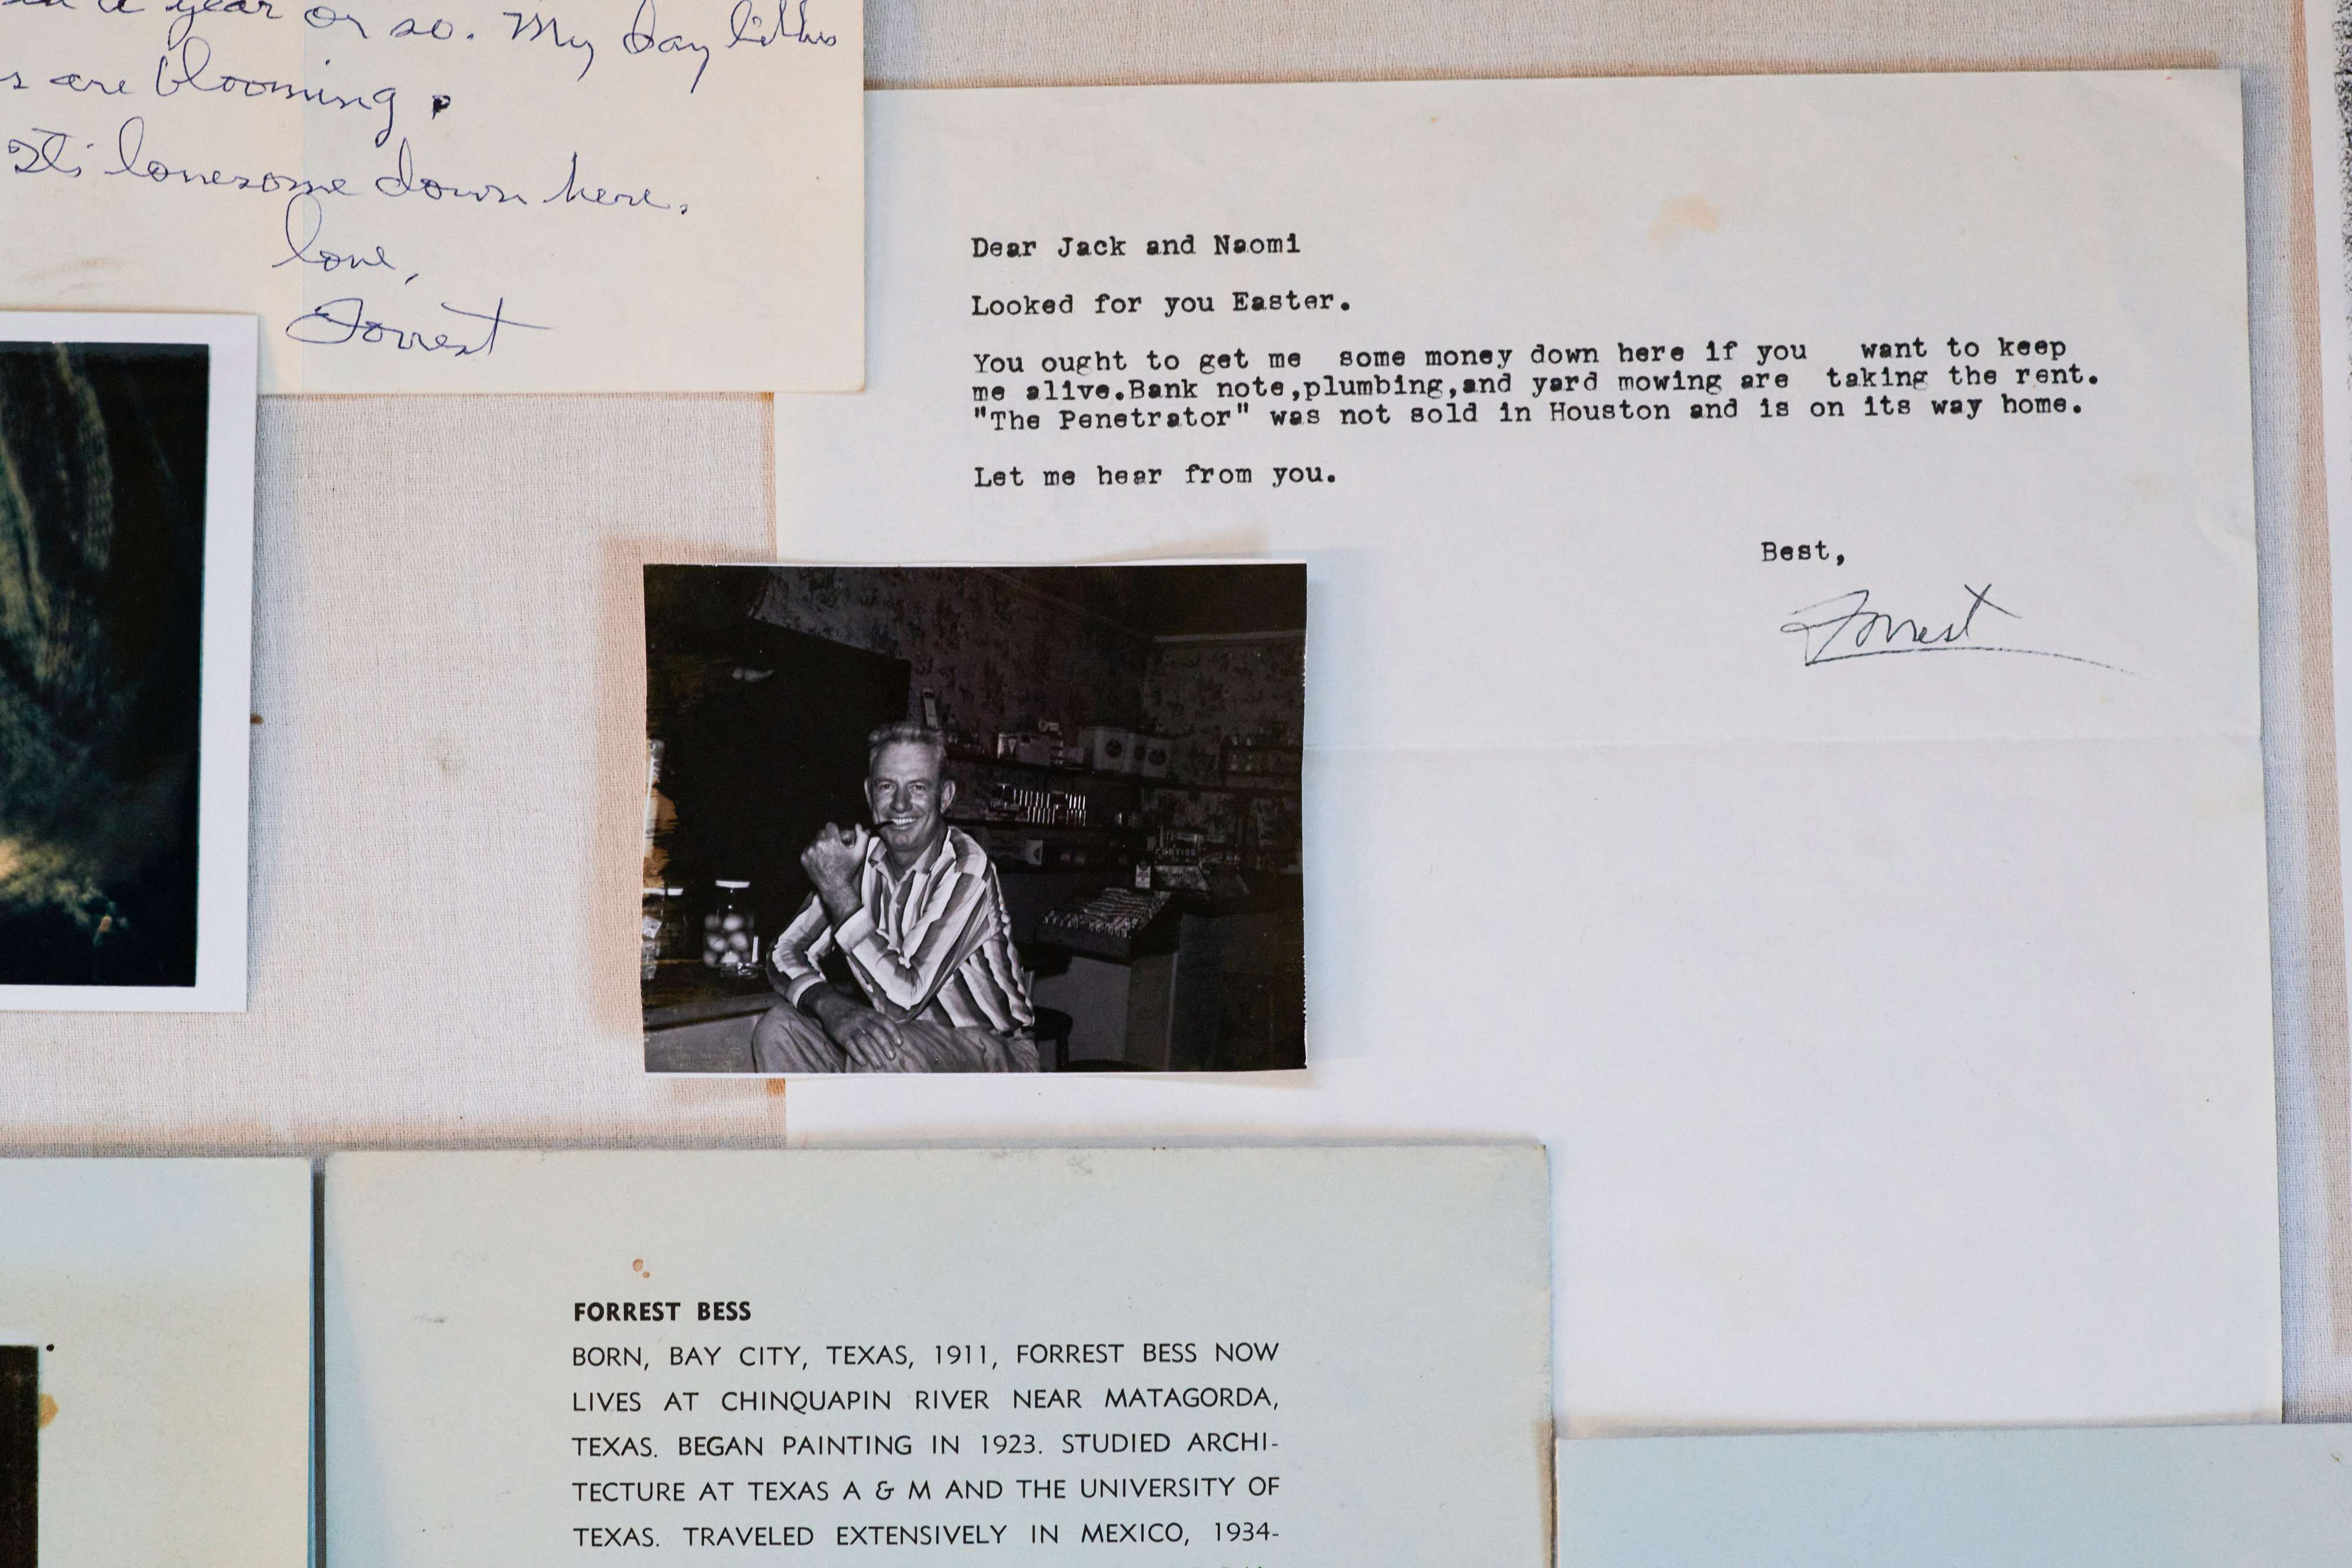 a year or so. My day lillies
s are blooming.
It's lonesome down here.
love,
Forrest
Dear Jack and Naomi
Looked for you Easter.
You ought to get me some money down here if you want to keep
me alive.Bank note,plumbing,and yard mowing are taking the rent.
"The Penetrator" was not sold in Houston and is on its way home.
Let me hear from you.
Best,
Forrest
CURTISS
FORREST BESS
BORN, BAY CITY, TEXAS, 1911, FORREST BESS NOW
LIVES AT CHINQUAPIN RIVER NEAR MATAGORDA,
TEXAS. BEGAN PAINTING IN 1923. STUDIED ARCHI-
TECTURE AT TEXAS A & M AND THE UNIVERSITY OF
TEXAS. TRAVELED EXTENSIVELY IN MEXICO, 1934-